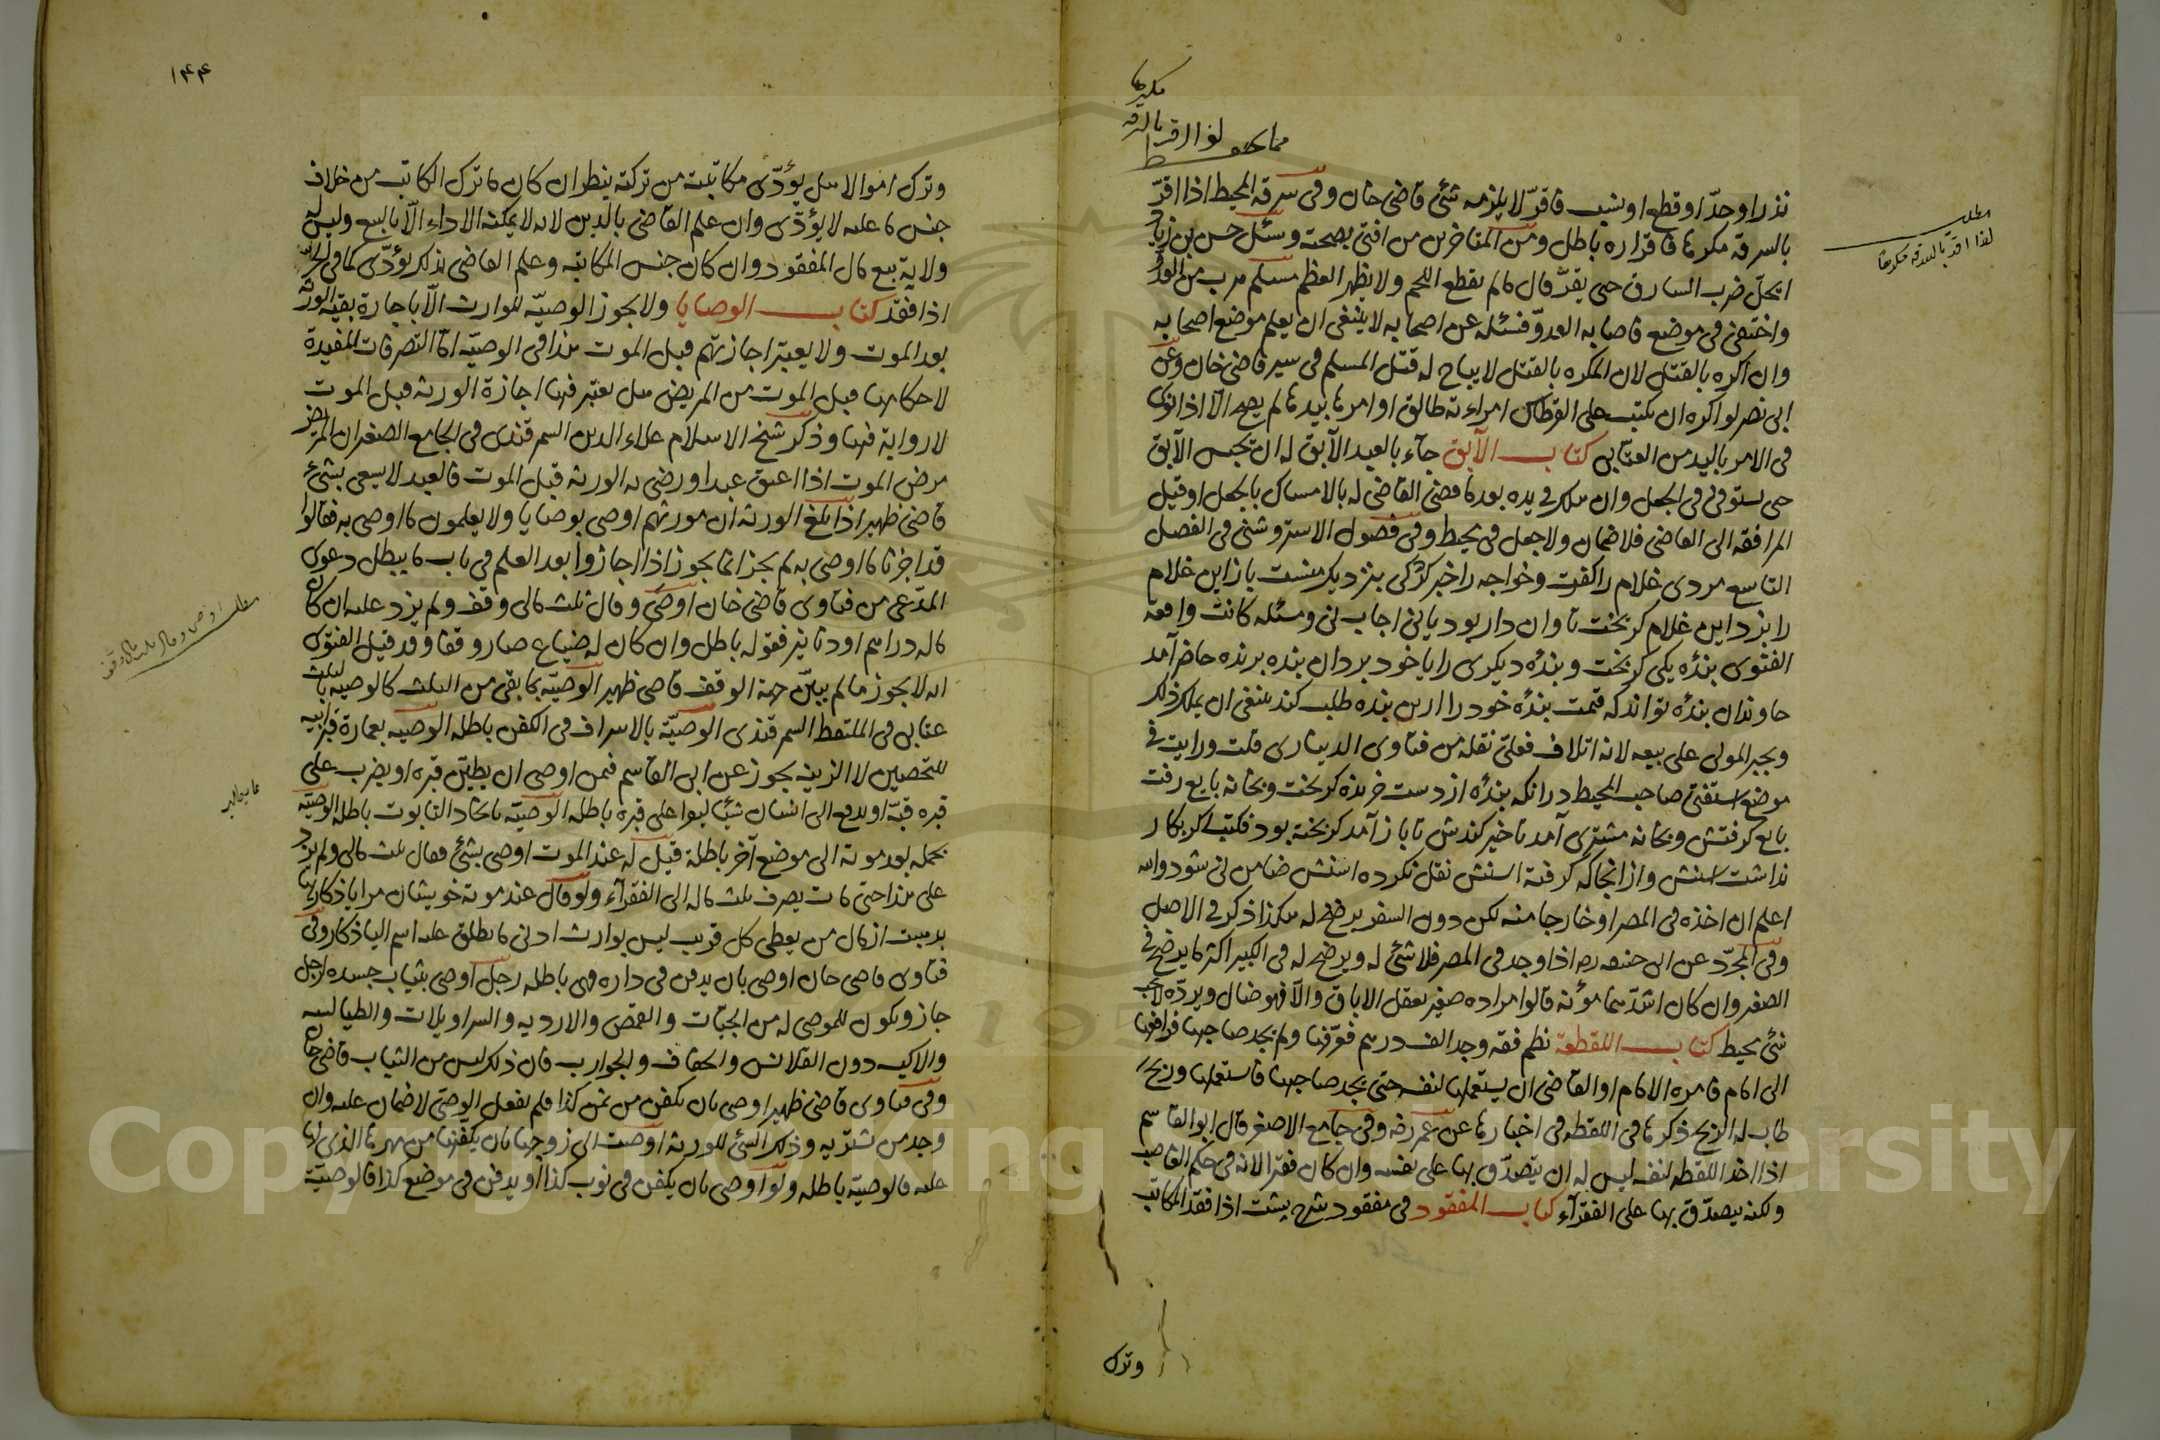 مكرها
لو اقر بالسرقة
مطلب
لو اقر بالسرقة مكرها
نذرا وحدّا وقطع او نسب فاقرّ لا يلزمه شئ قاضى خان وفى سرقة المحيط اذا اقرّ
بالسرقة مكرها فاقراره باطل ومن المتاخرين من افتى بصحته وسئل حسن بن زياد
ايحلّ ضرب السارق حتى يقرّ قال مالم يقطع اللحم ولا يظهر العظم مسلم هرب من العدو
واختفى فى موضع فاصابه العدوّ فسئله عن اصحابه لا ينبغى ان يعلم موضع اصحابه
وان اكره بالقتل لان المكره بالقتل لا يباح له قتل المسلم فى سير قاضى خان وعن
ابى نصر لو اكره ان يكتب على القرطاس امراءته طالق او امرها بيدها لم يصح الّا اذا نوى
فى الامر باليد من العتابى كتاب الآبق جآء بالعبد الآبق له ان يحبس الآبق
حتى يستوفى الجعل وان هلك فى يده بعد ما قضى القاضى له بالامساك بالجعل او قبل
المرافقة الى القاضى فلا ضمان ولا جعل فى محيط وفى فصول الاستروشنى فى الفصل
التاسع مردى غلام را كفت وخواجه را خبر كن كى بنزديك منست باز اين غلام
را بزد اين غلام كريخت تاوان دار بود يانى اجاب نى ومسئله كانت واقعة
الفتوى بندۀ يكى كريخت وبندۀ ديكرى را با خود برد ان بنده برنده حاضر آمد
خاوندان بندۀ تواند كه قيمت بندۀ خود را ازين بنده طلب كند ينبغى ان يملك ذلك
ويجبر المولى على بيعه لانه اتلاف فعلىّ نقله من فتاوى الدينارى قلت ورايت فى
موضع استفتى صاحب المحيط درانكه بندۀ از دست خرنده كريخت وبخانه بايع رفت
بايع كرفتش وبخانه مشترى آمد تا خبر كندش تا باز آمد كريخته بود فكتب اكر بكار
نداشت استش وازانجا كه كرفته استش نقل نكرده استش ضامن نى شود والله
اعلم ان اخذه فى المصر او خارجا منه لكن دون السفر يرضخ له هكذا ذكر فى الاصل
وفى المجرّد عن ابى حنيفه رح اذا وجد فى المصر فلا شئ له ويرضخ له فى الكبير اكثر ما يرضخ فى
الصغير وان كان اشدّهما مؤنة قالوا مراده صغير يعقل الاباق والّا فهو ضال ويردّه لا يجب
شئ محيط كتاب اللقطة نظم فقه وجد الف درهم فعرّفها ولم يجد صاحبها فرافعها
الى امام فامره الامام او القاضى ان يستعملها لنفسه حتى يجد صاحبها فاستعملها وربح
طاب له الربح ذكرها فى اللقطة فى اخبارها عن عمر رضه وفى جامع الاصغر قال ابو القاسم
اذا اخذ اللقطة لنفسه ليس له ان يتصدّق بها على نفسه وان كان فقيرا لانه فى حكم الغاصب
ولكنه يتصدّق بها على الفقرآء كتاب المفقود فى مفقود شرح بشت اذا فقد المكاتب
وترك
١٤٤
وترك اموالا هل يؤدّى مكاتبته من تركته ينظر ان كان ما ترك المكاتب من خلاف
جنس ما عليه لا يؤدّى وان علم القاضى بالدين لانه لا يمكنه الاداء الّا بالبيع وليس له
ولاية بيع مال المفقود وان كان جنس المكاتبة وعلم القاضى بذلك يؤدّى كما فى الحر
اذا فقد كتاب الوصايا ولا يجوز الوصيّة للوارث الّا باجازة بقية الورثة
بعد الموت ولا يعتبر اجازتهم قبل الموت هذا فى الوصيّة امّا التصرفات المفيدة
لاحكامها قبل الموت من المريض هل يعتبر فيها اجازة الورثة قبل الموت
لا رواية فيها وذكر شيخ الاسلام علاء الدين السمرقندى فى الجامع الصغير ان المريض
مرض الموت اذا اعتق عبدا ورضى به الورثة قبل الموت فالعبد لا يسعى بشئ
قاضى ظهير اذا بلغ الورثة ان مورثهم اوصى بوصايا ولا يعلمون ما اوصى به فقالوا
قد اجزنا ما اوصى به لم يجز انما يجوز اذا اجازوا بعد العلم فى باب ما يبطل دعوى
المدّعى من فتاوى قاضى خان اوصى وقال ثلث مالى وقف ولم يزد عليه ان كان
ماله دراهم او دنانير فقوله باطل وان كان له ضياع صار وقفا وقد قيل الفتوى
انه لا يجوز ما لم يبيّن جهة الوقف قاضى ظهير الوصيّة بما بقى من الثلث كالوصية بالثلث
عتابى فى الملتقط السمرقندى الوصيّة بالاسراف فى الكفن باطلة الوصية بعمارة قبر ابيه
للتحصين لا الزينة يجوز عن ابى القاسم فيمن اوصى ان يطيّن قبره او يضرب على
قبره قبّة او يدفع الى انسان شيئا ليقرا على قبره باطلة الوصيّة باتخاذ التابوت باطلة الوصيّة
بحمله بعد موته الى موضع آخر باطلة قيل له عند الموت اوصى بشئ فقال ثلث مالى ولم يزد
على هذا حتى مات يصرف ثلث ماله الى الفقرآء ولو قال عند موته خويشان مرا ياذكار
بدهيت از مال من يعطى كل قريب ليس بوارث ادنى ما يطلق عليه اسم الياذكار وفى
فتاوى قاضى خان اوصى بان يدفن فى داره فهى باطلة رجل اوصى بثياب جسده لرجل
جاز ويكون للموصى له من الجبّات والقمص والارديه والسراويلات والطيالسه
والاكسيه دون القلانس والخفاف والجوارب فان ذلك ليس من الثياب قاضى خان
وفى فتاوى قاضى ظهير اوصى بان يكفن من ثمن كذا فلم يفعل الوصىّ لا ضمان عليه وان
وجد من يشتريه وذلك الشئ للورثة اوصت الى زوجها بان يكفّنها من مهرها الذى لها
عليه فالوصيّة باطله ولو اوصى بان يكفن فى ثوب كذا او يدفن فى موضع كذا فالوصيّة
مطلب اوصى وقال ثلث مالى وقف